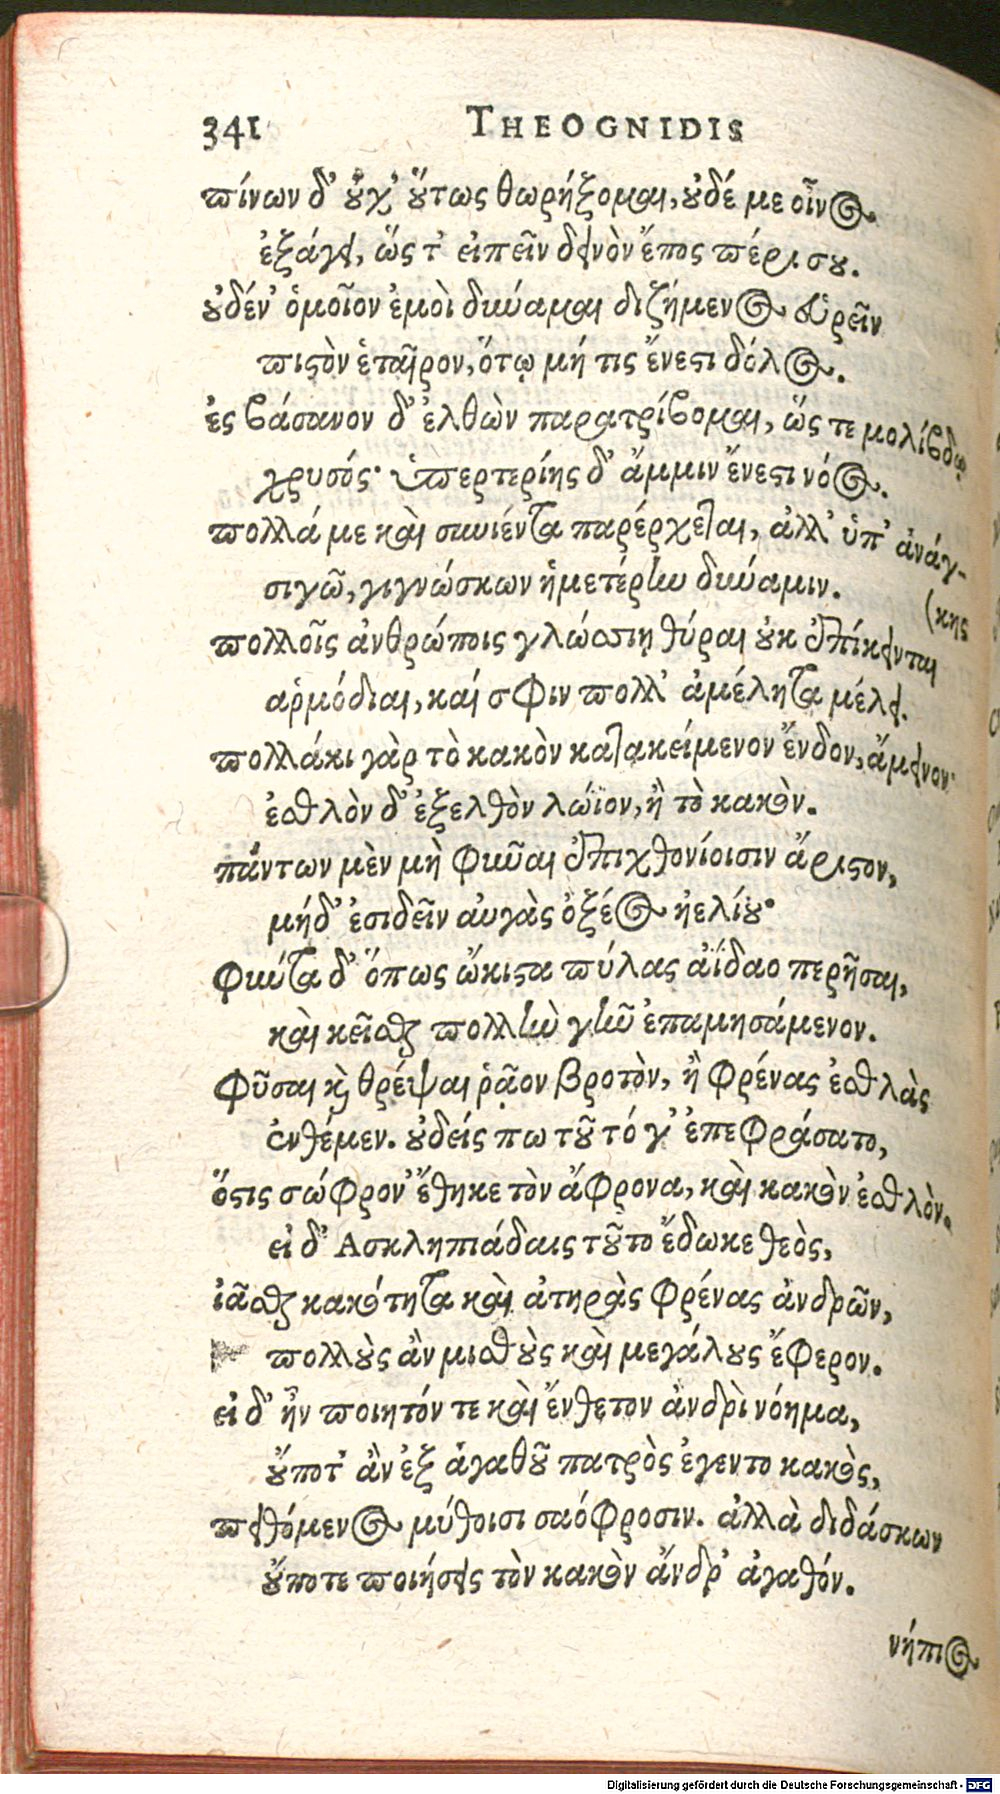 341 THEOGNIDIS
πίνων δ' οὐχ' οὕτως θωρήξομαι, οὐδέ με οἶνος
ἐξάγει, ὥς τ' εἰπεῖν δεινὸν ἔπος πέρι σου.
οὐδέν' ὁμοῖον ἐμοὶ δύναμαι διζήμενος εὑρεῖν
πιστὸν ἑταῖρον, ὅτῳ μή τις ἔνεστι δόλος.
ἐς βάσανον δ' ἐλθὼν παρατρίβομαι, ὥς τε μολίβδῳ
χρυσός· ὑπερτερίης δ' ἄμμιν ἔνεστι νόος.
πολλά με καὶ συνιέντα παρέρχεται, ἀλλ' ὑπ' ἀνάγ-
σιγῶ, γιγνώσκων ἡμετέρην δύναμιν. (κης
πολλοῖς ἀνθρώποις γλώσσῃ θύραι οὐκ ἐπίκεινται
αρμόδιαι, καί σφιν πολλ' ἀμέλητα μέλει.
πολλάκι γὰρ τὸ κακὸν κατακείμενον ἔνδον, ἄμεινον·
ἐσθλὸν δ' ἐξελθὸν λώϊον, ἢ τὸ κακὸν.
πάντων μὲν μὴ φῦναι ἐπιχθονίοισιν ἄριστον,
μήδ' ἐσιδεῖν αὐγὰς ὀξέος ἠελίου·
φύντα δ' ὅπως ὤκιστα πύλας ἀΐδαο περῆσαι,
καὶ κεῖσθαι πολλὴν γῆν ἐπαμησάμενον.
φῦσαι καὶ θρέψαι ῥᾷον βροτὸν, ἢ φρένας ἐσθλὰς
ἐνθέμεν. οὐδείς πω τοῦτό γ' ἐπεφράσατο,
ὅστις σώφρον' ἔθηκε τὸν ἄφρονα, καὶ κακὸν ἐσθλὸν.
εἰ δ' Ασκληπιάδαις τοῦτο ἔδωκε θεὸς,
ἰᾶσθαι κακότητα καὶ ἀτηρὰς φρένας ἀνδρῶν,
πολλοὺς ἂν μισθοὺς καὶ μεγάλους ἔφερον.
εἰ δ' ἦν ποιητόν τε καὶ ἔνθετον ἀνδρὶ νόημα,
οὔποτ' ἂν ἐξ ἀγαθοῦ πατρὸς ἐγεντο κακὸς,
πειθόμενος μύθοισι σαόφροσιν. ἀλλὰ διδάσκων
οὔποτε ποιήσεις τὸν κακὸν ἄνδρ' ἀγαθόν.
νήπιος
Digitalisierung gefördert durch die Deutsche Forschungsgemeinschaft - DFG